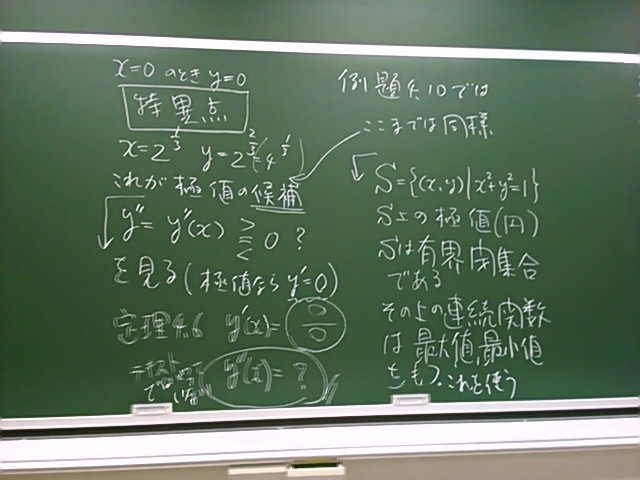 x=0 のとき y=0
特異点
x=2^{1/3} y=2^{2/3}(=4^{1/3})
これが極値の候補
y''=y''(x) ≧≦ 0 ?
を見る(極値なら y'=0)
定理4.6 y'(x)=0/0
y''(x)=?
例題4.10では
ここまでは同様
S={(x,y)|x²+y²=1}
S上の極値(円)
Sは有界閉集合
である
その上の連続関数
は最大値,最小値
をもつ。これを使う